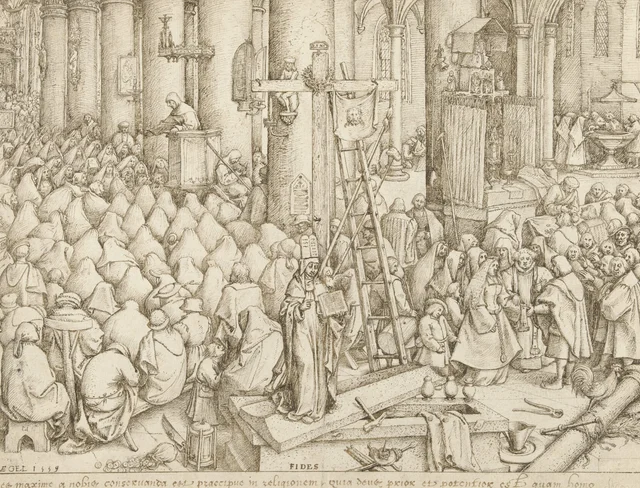 EGEL 1559
FIDES
maxime a nobis conseruanda est praecipue in religionem, quia deus prior et potentior est quam homo